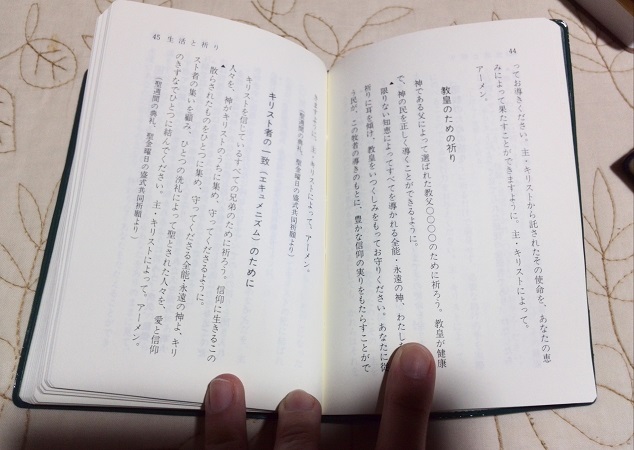 44
ってお導きください。主・キリストから託されたその使命を、あなたの恵
みによって果たすことができますように、主・キリストによって。
アーメン。
教皇のための祈り
神である父によって選ばれた教父〇〇〇〇のために祈ろう。教皇が健康
で、神の民を正しく導くことができるように。
▲限りない知恵によってすべてを導かれる全能・永遠の神、わたし
祈りに耳を傾け、教皇をいつくしみをもってお守りください。あなたに従
う民が、この牧者の導きのもとに、豊かな信仰の実りをもたらすことがで
きますように、主・キリストによって。アーメン。
(聖週間の典礼、聖金曜日の盛式共同祈願より)
キリスト者の一致(エキュメニズム)のために
キリストを信じているすべての兄弟のために祈ろう。信仰に生きるこの
人々を、神がキリストのうちに集め、守ってくださるように。
▲散らされたものをひとつに集め、守ってくださる全能・永遠の神よ、キリ
スト者の集いを顧み、ひとつの洗礼によって聖とされた人々を、愛と信仰
のきずなでひとつに結んでください。主・キリストによって。アーメン。
(聖週間の典礼、聖金曜日の盛式共同祈願より)
45 生活と祈り